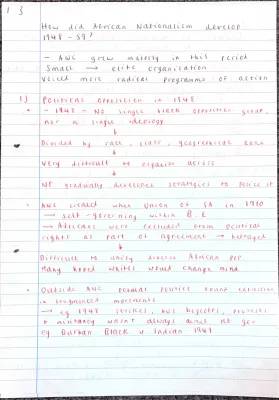 1 3
How did African Nationalism develop
1948 - 59?
- ANC grew majorly in this period
Small → elite organisation
Voiced more radical programme of action
1) Political opposition in 1948
- 1948 - No single black opposition group,
nor a single ideology
Divided by race, class, geographical
Very difficult to organise across
NP gradually developed strategies to police it
ANC created when Union of SA in 1910
→ self-governing within B.E
→ Africans were excluded from political
rights as part of agreement → betrayed
Difficult to unify diverse African pop
Many hoped whites would change mind
Outside ANC popular politics found expression
in fragmented movements
→ eg 1947 strikes, bus boycotts, protests
→ militancy wasn't always against
eg Durban Black v Indian 1949